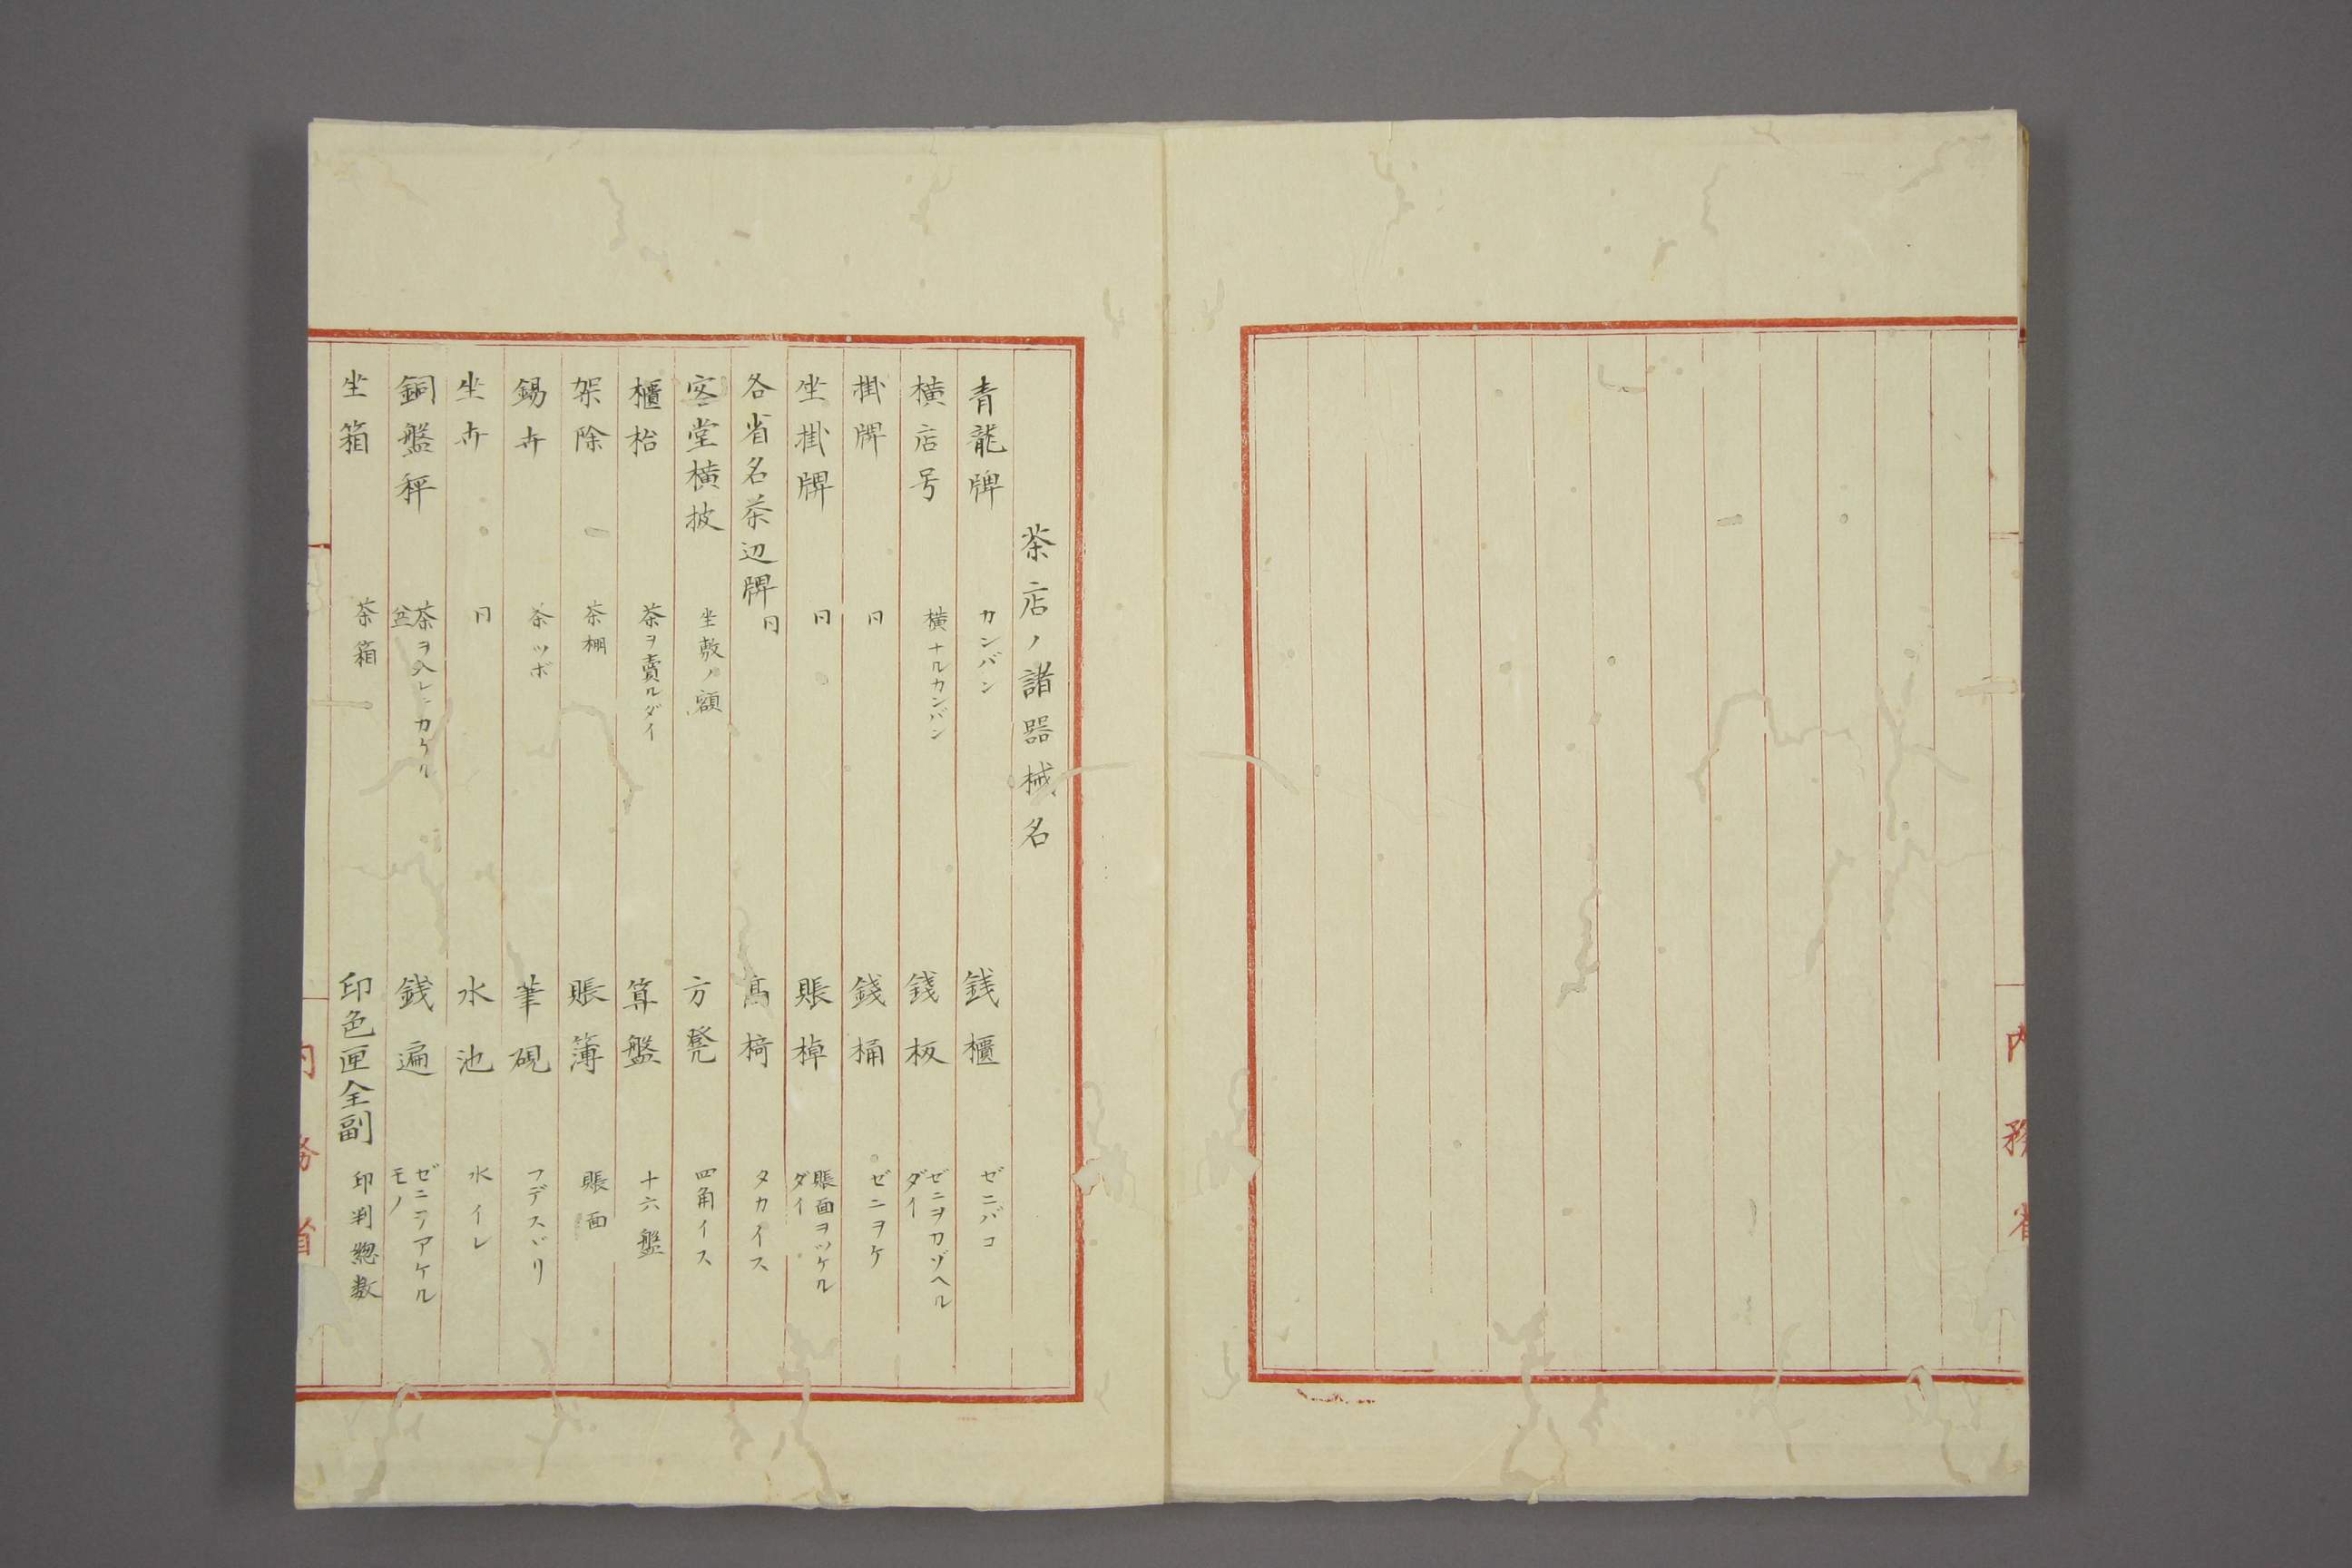 内務省
茶店ノ諸器械名
青龍牌 カンバン 銭櫃 ゼニバコ
横店号 横ナルカンバン 錢板 ゼニヲカゾヘルダイ
掛牌 冂 錢桶 ゼニヲケ
坐掛牌 冂 賬棹 賬面ヲツケルダイ
各省名茶辺牌 冂 髙椅 タカイス
客堂横披 坐敷ノ額 方凳 四角イス
櫃枱 茶ヲ賣ルダイ 算盤 十六盤
架除 茶棚 賬簿 賬面
錫卉 茶ツボ 筆硯 フデスヾリ
坐卉 冂 水池 水イレ
銅盤秤 茶ヲ入レニカケル盆 銭遍 ゼニニテアケルモノ
坐箱 茶箱 印色匣全副 印判惣数
内務省